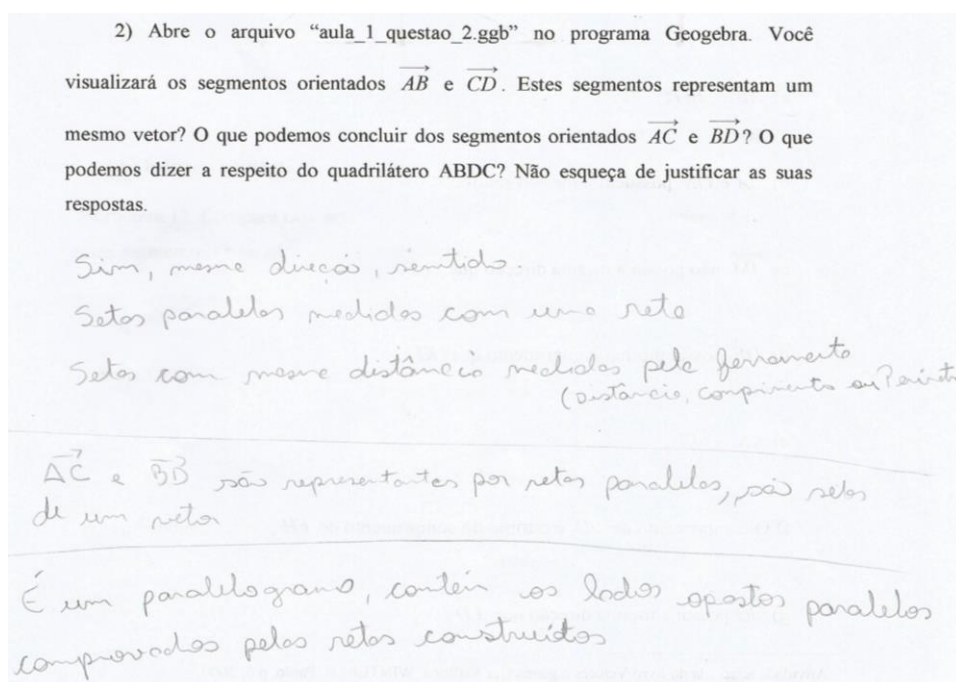 2) Abre o arquivo “aula_1_questao_2.ggb” no programa Geogebra. Você
visualizará os segmentos orientados AB e CD. Estes segmentos representam um
mesmo vetor? O que podemos concluir dos segmentos orientados AC e BD? O que
podemos dizer a respeito do quadrilátero ABDC? Não esqueça de justificar as suas
respostas.
Sim, mesma direção, sentido.
Setas paralelas medidas com uma reta
Setas com mesma distância medidas pela ferramenta
(Distância, comprimento ou
AC e BD são representantes por retas paralelas, são setas
de um vetor
É um paralelogramo, contém os lados opostos paralelos
comprovados pelas retas construídas